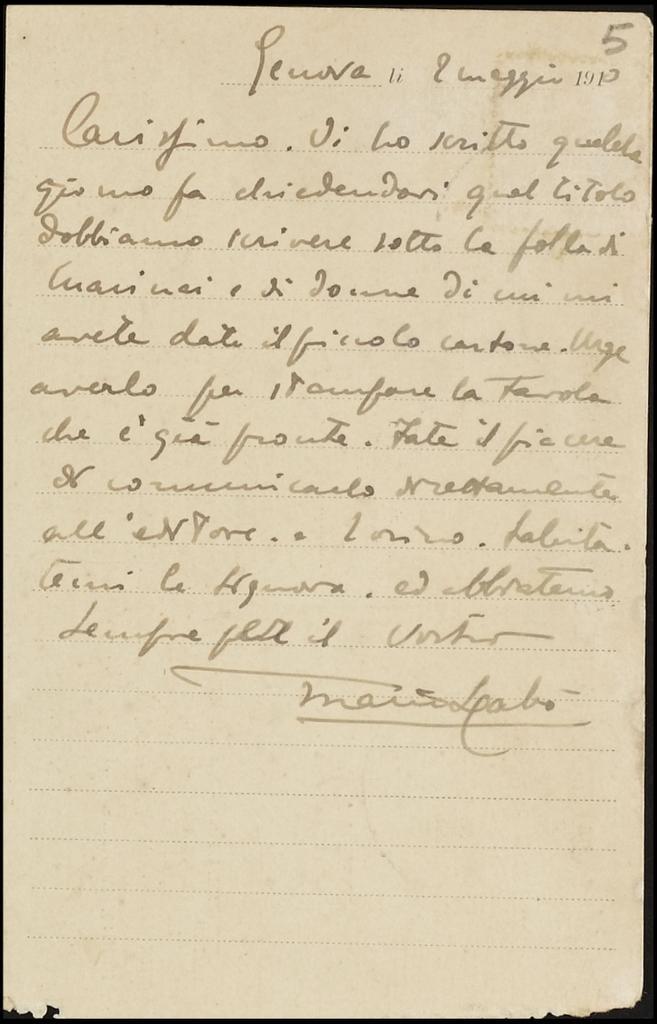 5
Genova li 2 maggio 1910
Carissimo. Vi ho scritto qualche
giorno fa chiedendovi qual titolo
dobbiamo scrivere sotto la folla di
marinai e di donne di cui mi
avete dato il piccolo cartone. Urge
averlo per stampare la tavola
che è già pronta. Fate il piacere
di comunicarlo direttamente
all'editore. a Torino. Saluta-
temi la Signora. ed abbiatemi
sempre pel il vostro
Mario Labò